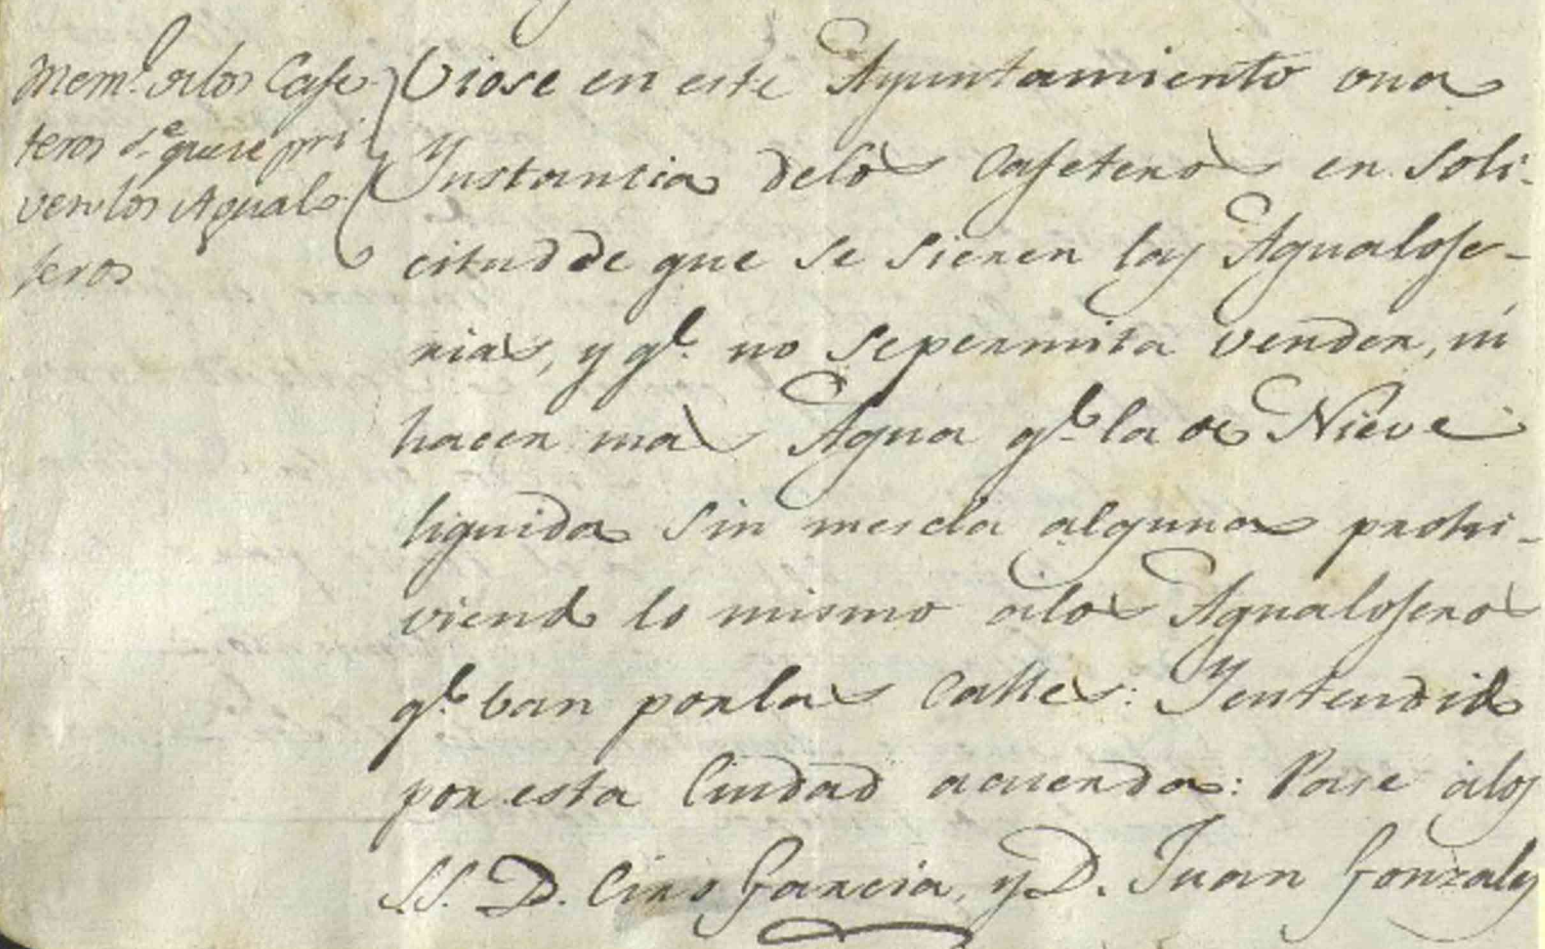 Mem.l de los Cafe
teros s.e que se pri
ven los Agualo
feros
Viose en este Ayuntamiento una
Ynstancia de los Cafeteros en soli-
citud de que se sieren las Agualofe-
rias, y q.e no se permita vender, ni
hacer mas Agua q.e la de Nieve
liquida sin mescla alguna prohi-
viendo lo mismo a los Agualoferos
q.e ban por las Calles: Y entendido
por esta Ciudad acuerda: Pase a los
S.S. D. Ciro Garcia, y D. Juan Gonzales